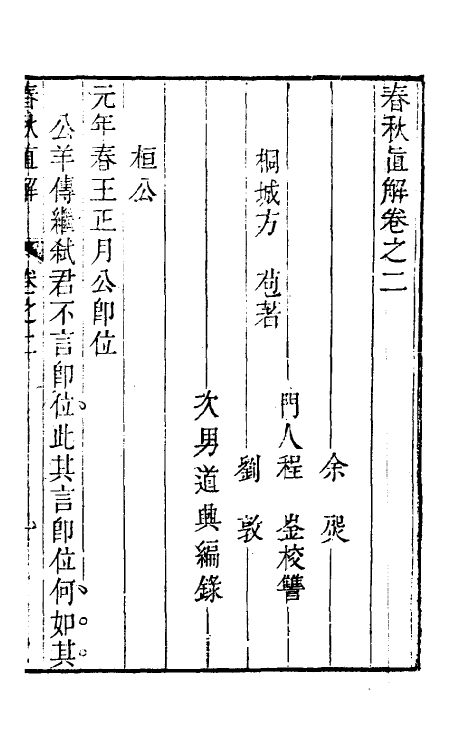 春秋直解卷之二
桐城方　苞著
余　㷟
門人程　崟校讐
劉　敦
次男道興編錄
桓公
元年春王正月公卽位
公羊傳繼弑君不言卽位此其言卽位何如其
春秋直解　卷之二